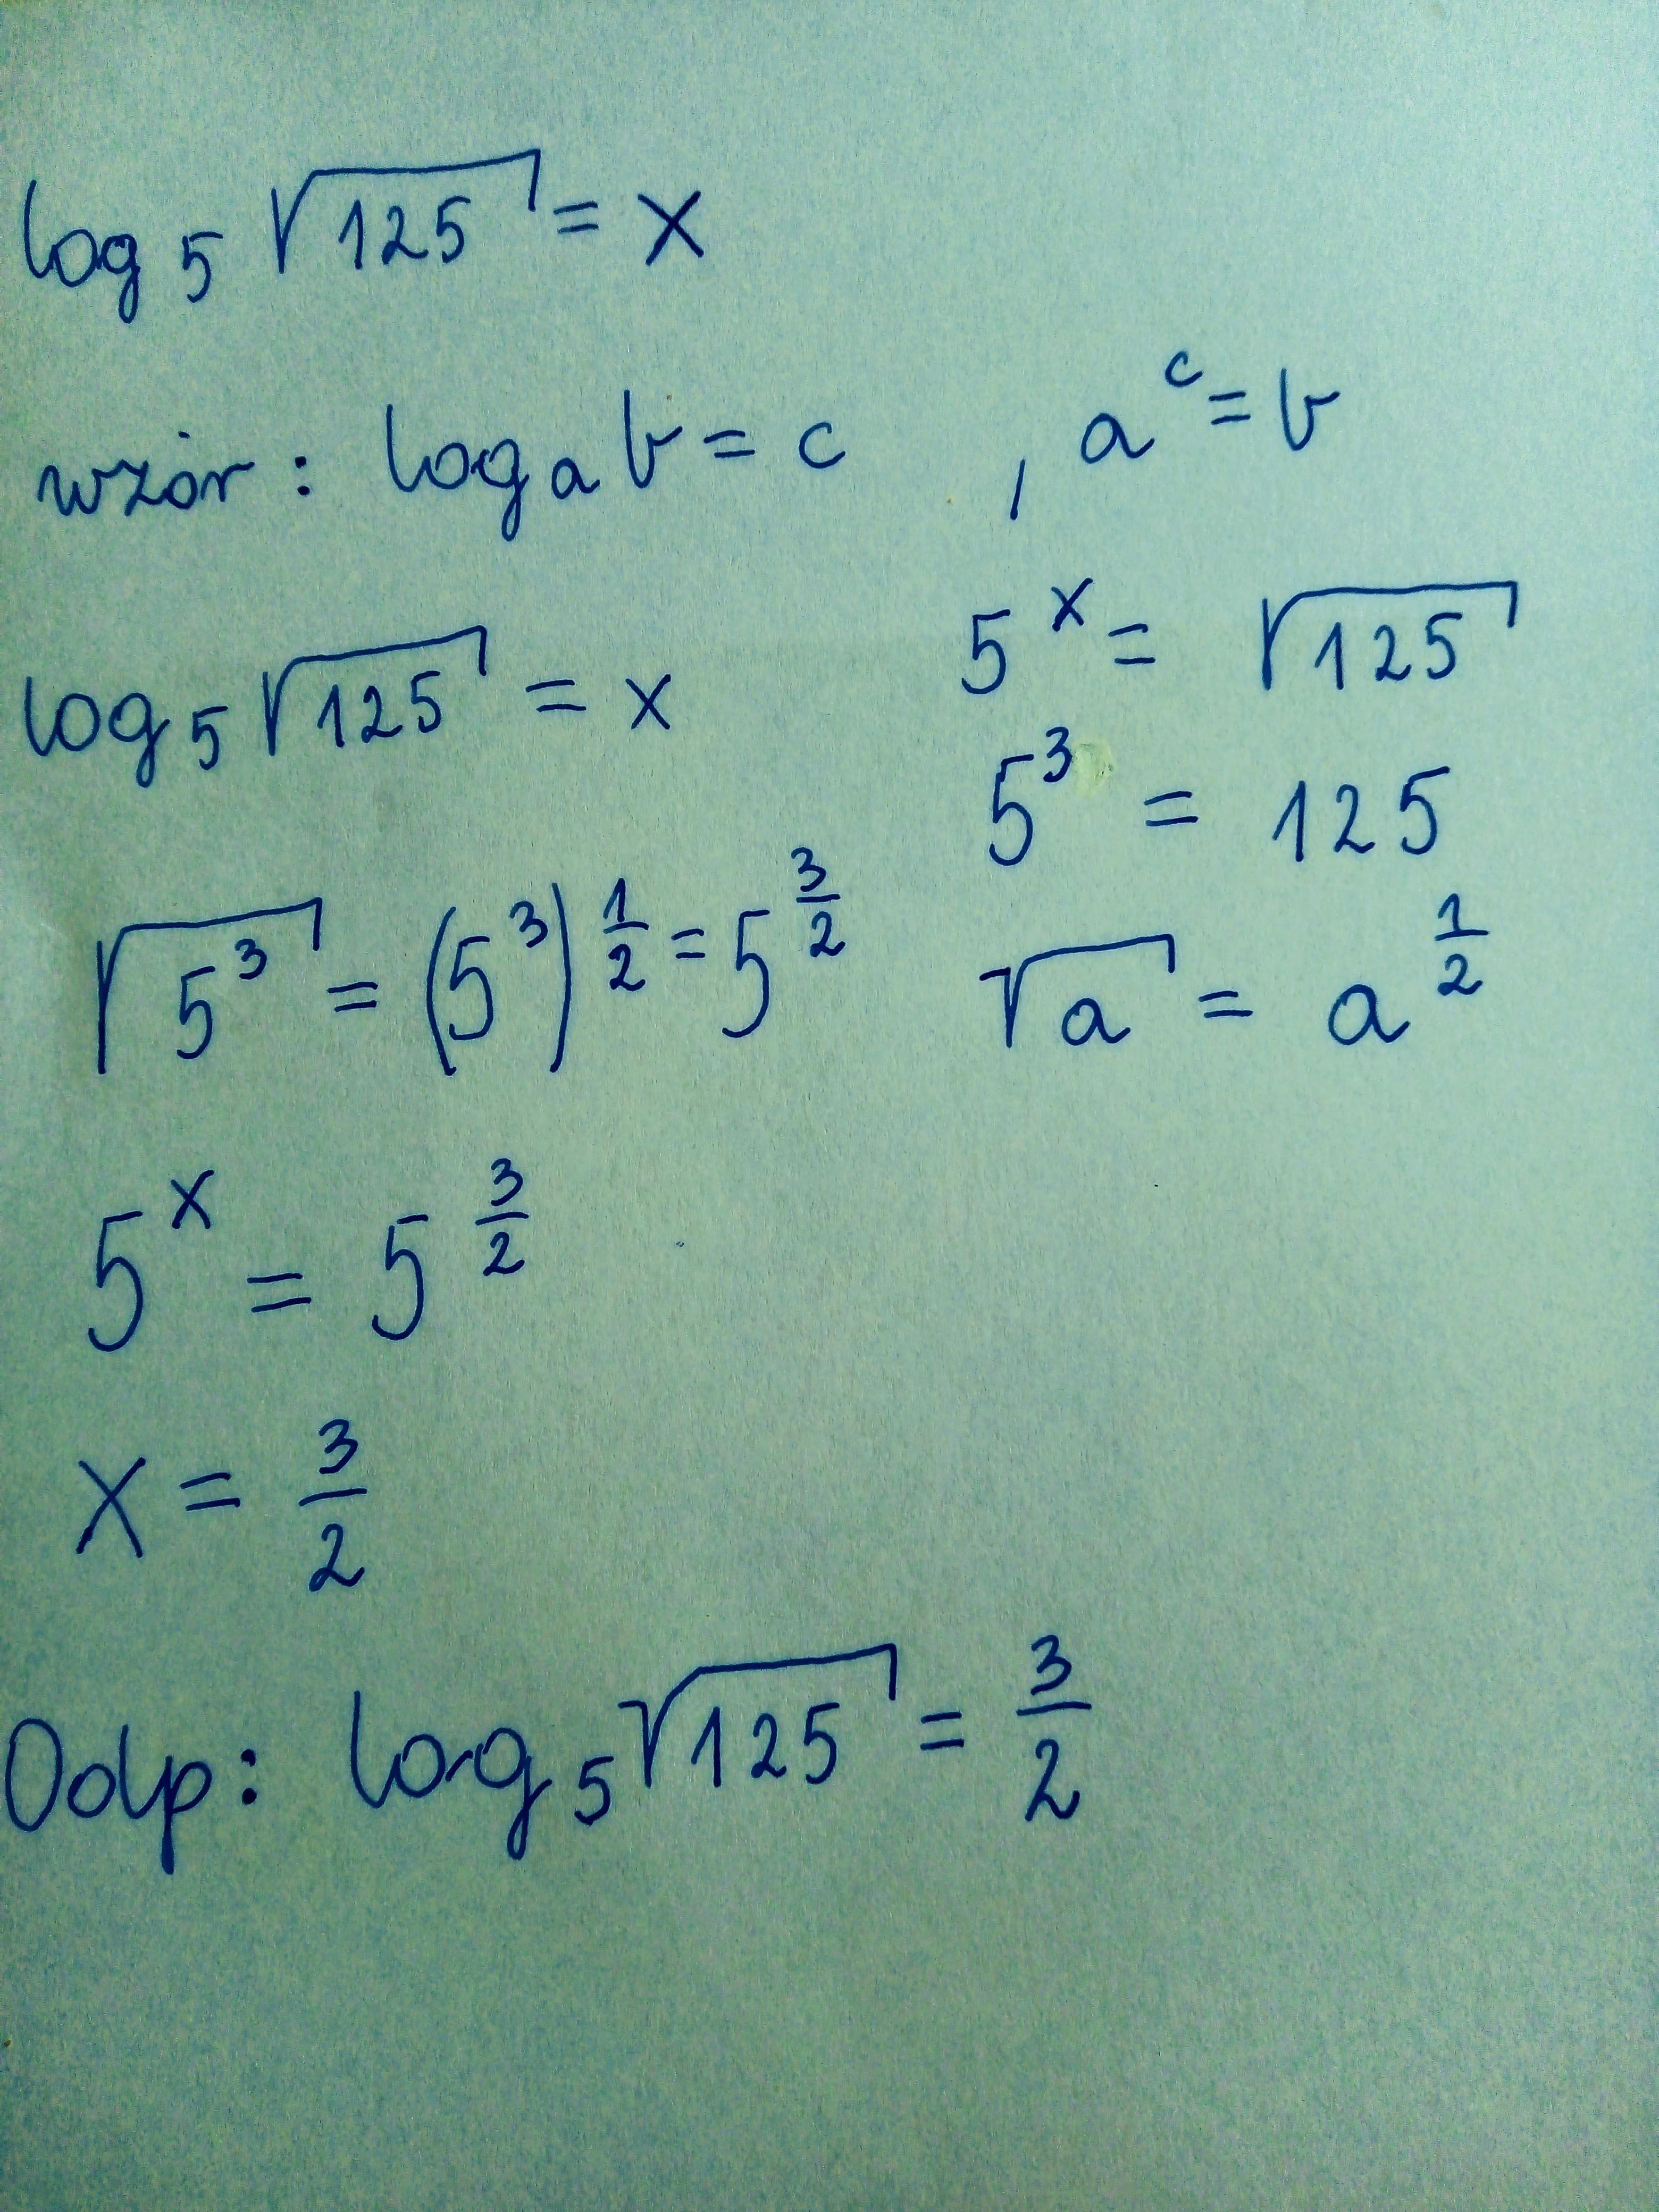 log₅ √125 = x
wzór: logₐ b = c , aᶜ = b
log₅ √125 = x
5ˣ = √125
5³ = 125
√5³ = (5³)^(1/2) = 5^(3/2)
√a = a^(1/2)
5ˣ = 5^(3/2)
x = 3/2
Odp: log₅ √125 = 3/2